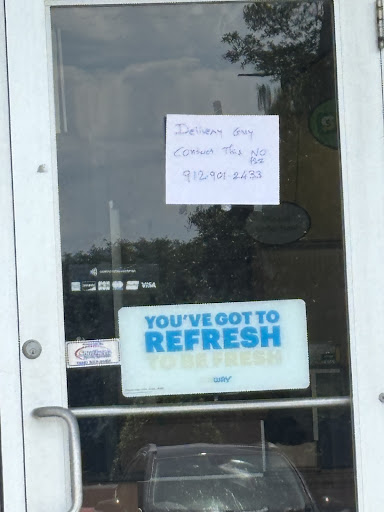 Delivery Guy
Contact This NO
912-901-2433
VISA
YOU'VE GOT TO
REFRESH
TO BE FRESH
WAY